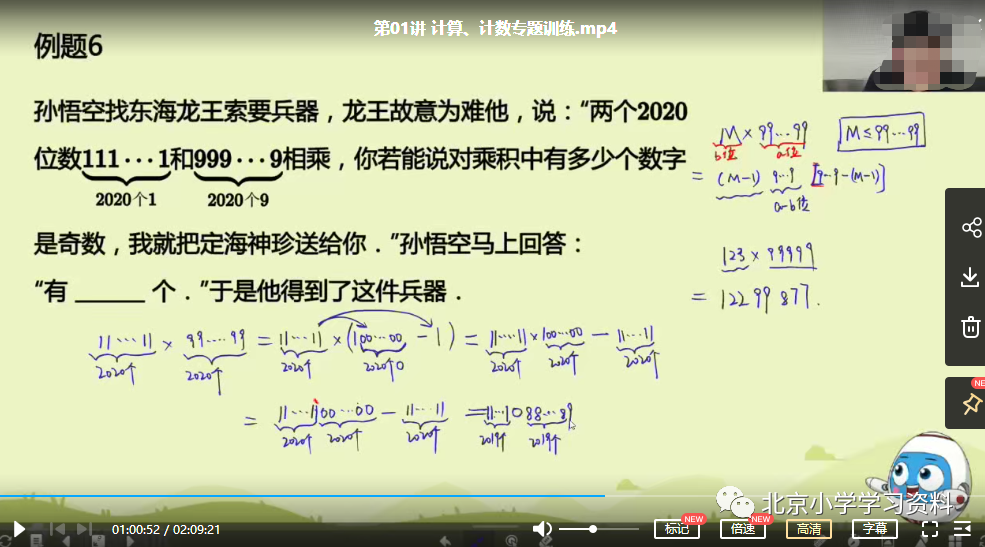 第01讲 计算、计数专题训练.mp4
例题6
孙悟空找东海龙王索要兵器，龙王故意为难他，说：“两个2020
位数111···1和999···9相乘，你若能说对乘积中有多少个数字
2020个1
2020个9
是奇数，我就把定海神珍送给你．”孙悟空马上回答：
“有 ______ 个．”于是他得到了这件兵器．
M × 99…99
b位
a位
M ≤ 99…99
= (M-1) 9…9 [9…9-(M-1)]
a-b位
123 × 99999
= 122 99 877.
11…11 × 99…99 = 11…11 × (100…00 - 1) = 11…11 × 100…00 - 11…11
2020个 2020个 2020个 2020个0 2020个 2020个 2020个
= 11…1100…00 - 11…11 = 11…1088…89
2020个 2020个 2020个 2019个 2019个
NEW
北京小学学习资料
01:00:52 / 02:09:21
标记 NEW
倍速 NEW
高清
字幕